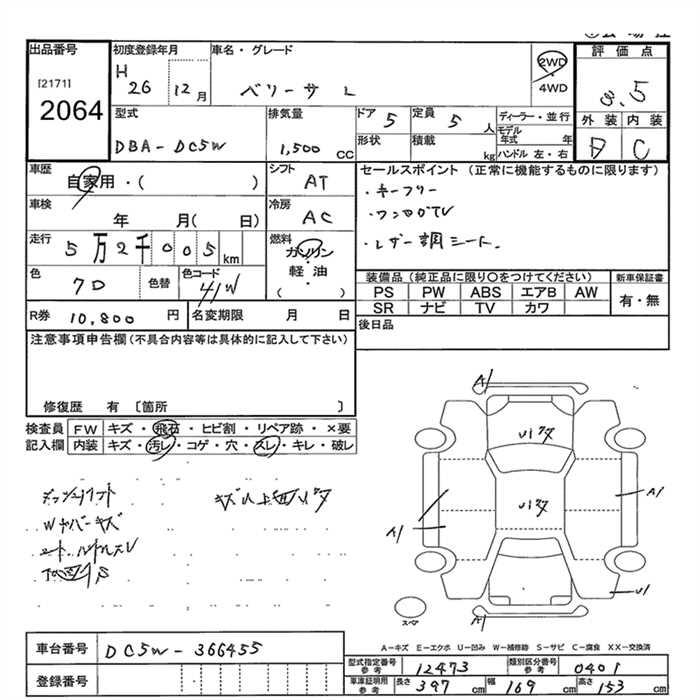 出品番号 初度登録年月 車名・グレード 評価点
[2171] H 26 12月 ベリーサ L 2WD
・
4WD
3.5
2064
型式 排気量 ドア 5 定員 5人 ディーラー・並行 外装 内装
DBA-DC5W 1,500 CC 形状 積載 kg モデル年式 年 C
ハンドル 左・右
車歴 シフト セールスポイント (正常に機能するものに限ります)
自家用・( ) AT ・キーフリー
車検 冷房 ・ワンセグTV
年 月( 日) AC ・レザー調シート.
走行 燃料
5万2千005km ガソリン
・
軽油
・
( )
色 色替 色コード 装備品 (純正品に限り〇をつけてください) 新車保証書
41W PS PW ABS エアB AW 有・無
SR ナビ TV カワ
R券 10,800 円 名変期限 月 日 後日品
注意事項申告欄(不具合内容等は具体的に記入して下さい)
修復歴 有 〔箇所 〕
検査員 FW キズ・飛石・ヒビ割・リペア跡・×要
記入欄 内装 キズ・汚レ・コゲ・穴・スレ・キレ・破レ
A1
A1
A1
A1
U1
Wナバーキズ
下回りS
スペア
A-キズ E-エクボ U-凹み W-補修跡 S-サビ C-腐食 XX-交換済
車台番号 DC5W-366455
型式指定番号 参考 12473 類別区分番号 参考 0401
登録番号 車庫証明用 参考 長さ 397 cm 幅 169 cm 高さ 153 cm